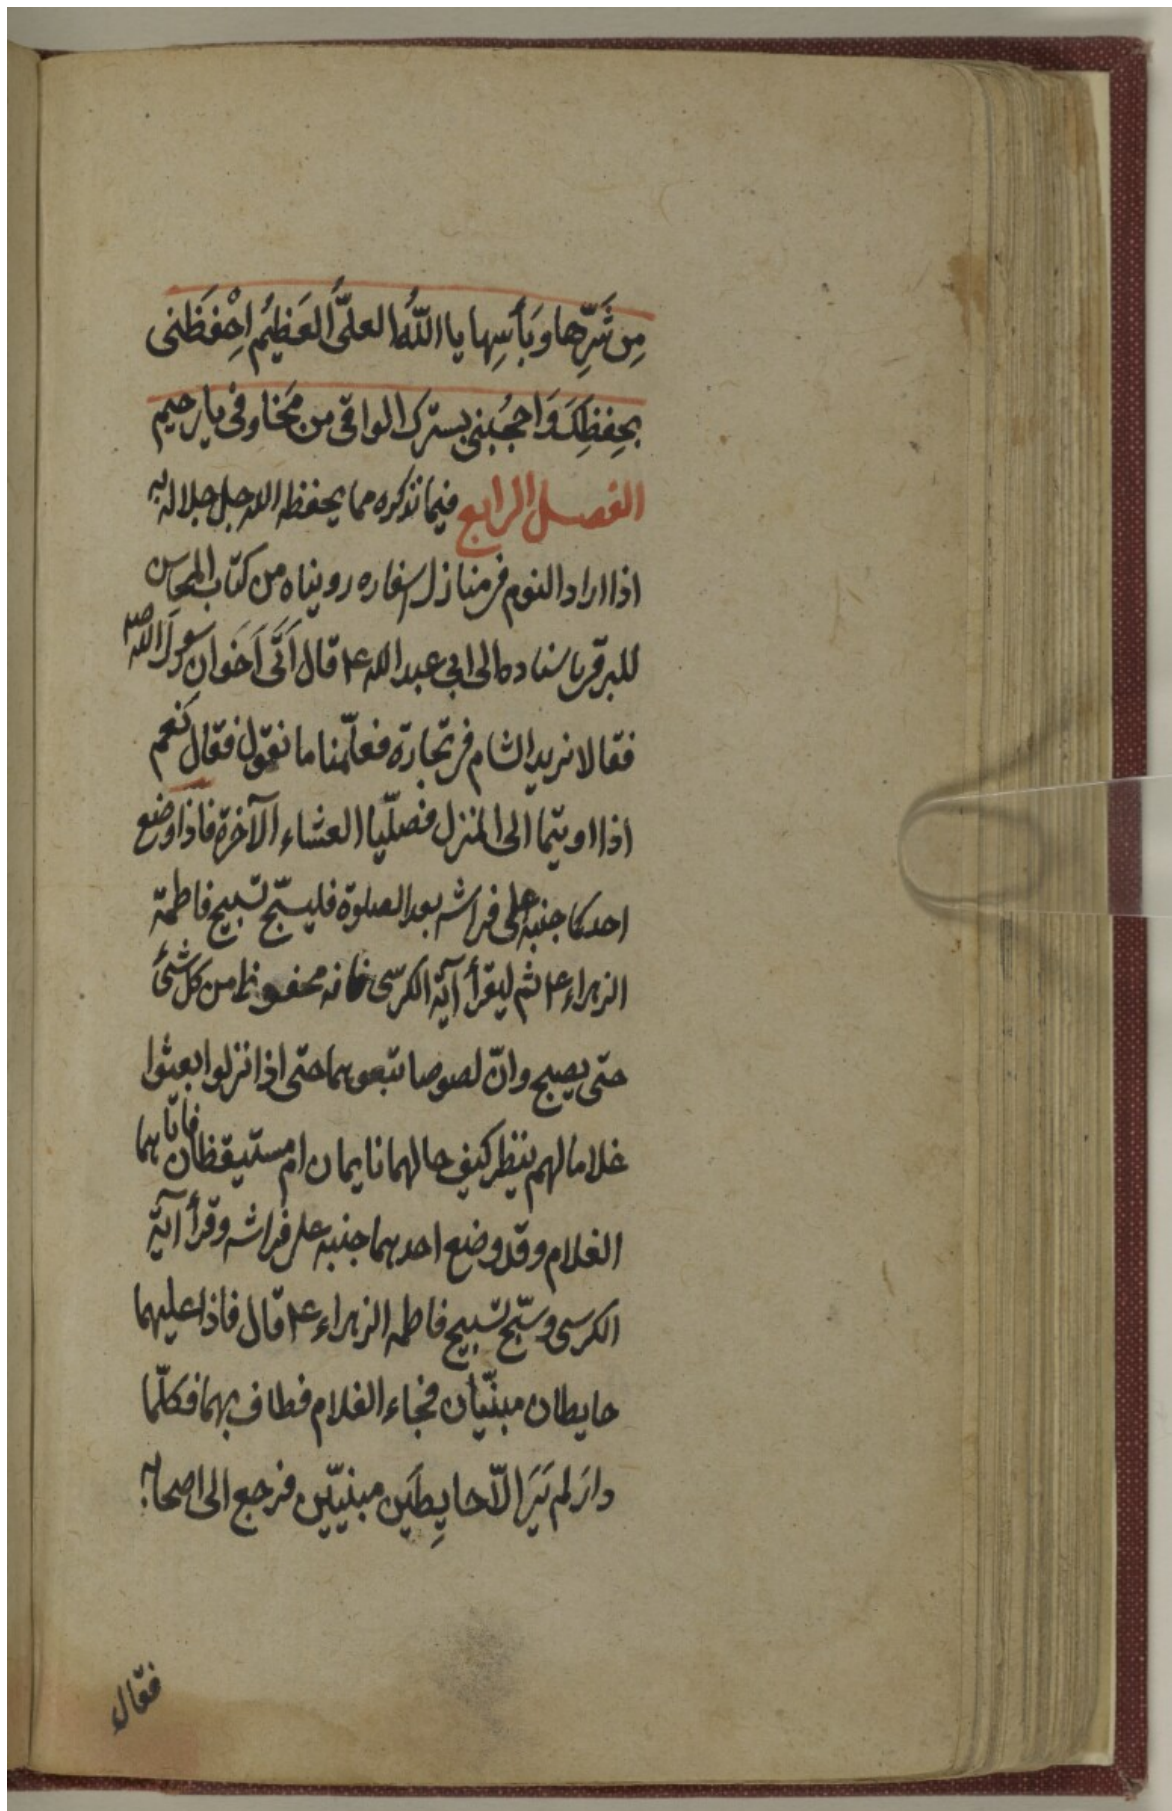 مِن شَرِّها وبَأسِها يا اللّٰهُ العلىُّ العَظيُم اِحْفَظَنى
بحِفِظِكَ وَاحجُبنى بسترك الواقى من مَخاوفى يا رحيم
الفصل الرابع فيما نذكره مما يحفظه الله جل جلاله به
اذا اراد النوم فى منازل اسفاره رويناه من كتاب المحاسن
للبرقى باسناده الى ابى عبد الله ع قال اَتَى اَخَوانِ رسولَ الله ص
فقالا نريد الشام فى تجارة فعلّمنا ما نقول فقال نَعم
اذا اويتما الى المنزل فصلّيا العشاء الآخرة فاذا وضع
احدكما جنبه على فراشه بعد الصلوة فليسبّح تسبيح فاطمة
الزهراء ع ثم ليقرأ آية الكرسى فانه محفوظ من كل شئ
حتى يصبح وانّ لصوصا تبعوهما حتى اذا نزلوا بعثوا
غلاما لهم ينظر كيف حالهما نايمان ام مستيقظان فاتاهما
الغلام وقد وضع احدهما جنبه على فراشه وقرأ آية
الكرسى وسبّح تسبيح فاطمه الزهراء ع قال فاذا عليهما
حايطان مبنيّان فجاء الغلام فطاف بهما فكلّما
دارَ لم يَرَ الاّ حايِطَين مبنيّين فرجع الى اصحابه
فقال